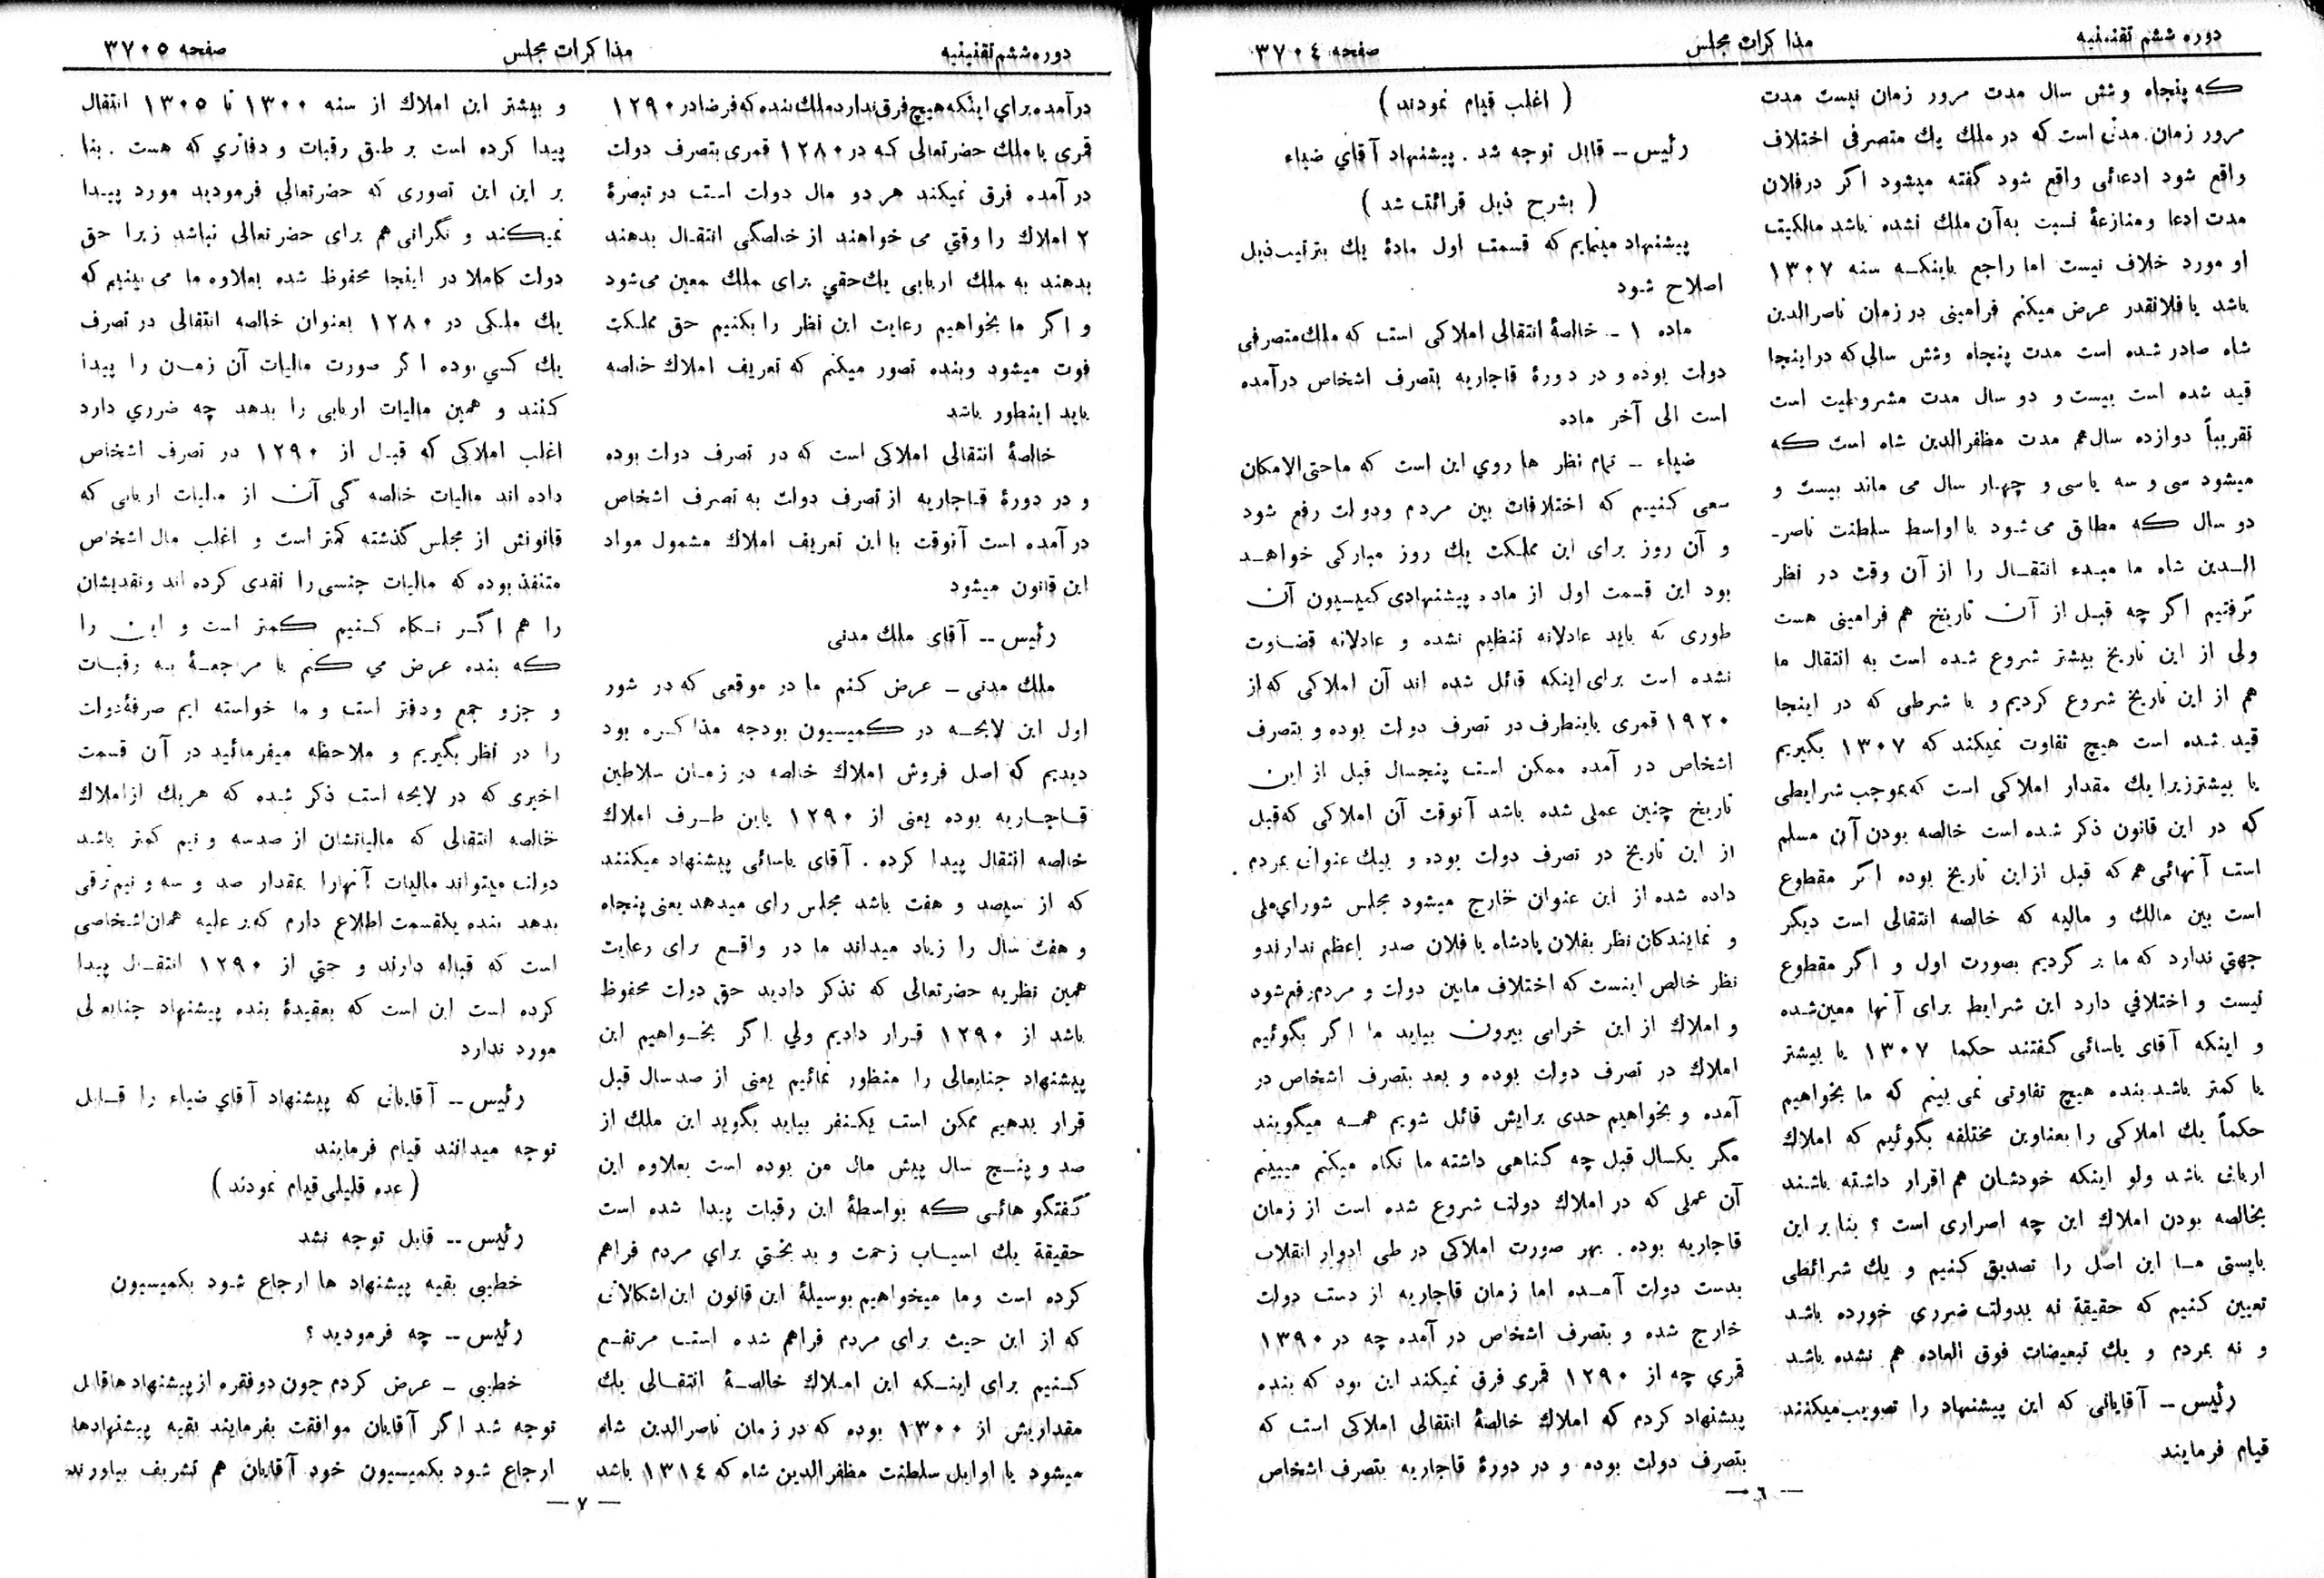 دوره ششم تقنینیه
مذاکرات مجلس
صفحه ۳۷۰۴
که پنجاه وشش سال مدت مرور زمان نیست مدت
مرور زمان. مدتی است که در ملك یك متصرفی اختلاف
واقع شود ادعائی واقع شود گفته میشود اگر درفلان
مدت ادعا ومنازعهٔ نسبت به‌آن ملك نشده باشد مالکیت
او مورد خلاف نیست اما راجع باینکه سنه ۱۳۰۷
باشد یا فلانقدر عرض میکنم فرامینی در زمان ناصرالدین
شاه صادر شده است مدت پنجاه وشش سالی‌که دراینجا
قید شده است بیست و دو سال مدت مشروطیت است
تقریباً دوازده سال‌هم مدت مظفرالدین شاه است که
میشود سی و سه یا سی و چهار سال می ماند بیست و
دو سال که مطابق می شود با اواسط سلطنت ناصر-
الدین شاه ما مبدء انتقال را از آن وقت در نظر
گرفتیم اگر چه قبل از آن تاریخ هم فرامینی هست
ولی از این تاریخ بیشتر شروع شده است به انتقال ما
هم از این تاریخ شروع کردیم و با شرطی که در اینجا
قید شده است هیچ تفاوت نمیکند که ۱۳۰۷ بگیریم
یا بیشترزیرا یك مقدار املاکی است که‌بموجب شرایطی
که در این قانون ذکر شده است خالصه بودن آن مسلم
است آنهائی هم که قبل ازاین تاریخ بوده اگر مقطوع
است بین مالك و مالیه که خالصه انتقالی است دیگر
جهتي ندارد که ما بر گردیم بصورت اول و اگر مقطوع
نیست و اختلافي دارد این شرایط برای آنها معین‌شده
و اینکه آقای یاسائی گفتند حکما ۱۳۰۷ یا بیشتر
یا کمتر باشد بنده هیچ تفاوتی نمی بینم که ما بخواهیم
حکماً یك املاکی را بعناوین مختلفه بگوئیم که املاك
اربابی باشد ولو اینکه خودشان هم اقرار داشته باشند
بخالصه بودن املاك این چه اصراری است ؟ بنا بر این
بایستی ما این اصل را تصدیق کنیم و یك شرائطی
تعیین کنیم که حقیقة نه بدولت ضرری خورده باشد
و نه بمردم و یك تبعیضات فوق العاده هم نشده باشد
رئیس -- آقایانی که این پیشنهاد را تصویب میکنند
قیام فرمایند
( اغلب قیام نمودند )
رئیس -- قابل توجه شد . پیشنهاد آقاي ضیاء
( بشرح ذیل قرائت شد )
پیشنهاد مینمایم که قسمت اول مادهٔ یك بترتیب‌ذیل
اصلاح شود
ماده ۱ - خالصهٔ انتقالی املاکی است که ملك‌متصرفی
دولت بوده و در دورهٔ قاجاریه بتصرف اشخاص درآمده
است الی آخر ماده
ضیاء -- تمام نظر ها روي این است که ماحتی‌الامکان
سعی کنیم که اختلافات بین مردم ودولت رفع شود
و آن روز برای این مملکت یك روز مبارکی خواهد
بود این قسمت اول از ماده پیشنهادی کمیسیون آن
طوری که باید عادلانه تنظیم نشده و عادلانه قضاوت
نشده است برای اینکه قائل شده اند آن املاکی که‌از
۱۹۲۰ قمری باینطرف در تصرف دولت بوده و بتصرف
اشخاص در آمده ممکن است پنجسال قبل از این
تاریخ چنین عملی شده باشد آنوقت آن املاکی که‌قبل
از این تاریخ در تصرف دولت بوده و بیك عنوان بمردم
داده شده از این عنوان خارج میشود مجلس شورای‌ملی
و نمایندکان نظر بفلان پادشاه یا فلان صدر اعظم ندارندو
نظر خالص اینست که اختلاف مابین دولت و مردم رفع شود
و املاك از این خرابی بیرون بیاید ما اگر بگوئیم
املاك در تصرف دولت بوده و بعد بتصرف اشخاص در
آمده و بخواهیم حدی برایش قائل شویم همه میگویند
مگر یکسال قبل چه گناهی داشته ما نگاه میکنم میبینم
آن عملی که در املاك دولت شروع شده است از زمان
قاجاریه بوده . بهر صورت املاکی در طی ادوار انقلاب
بدست دولت آمده اما زمان قاجاریه از دست دولت
خارج شده و بتصرف اشخاص در آمده چه در ۱۳۹۰
قمري چه از ۱۲۹۰ قمری فرق نمیکند این بود که بنده
پیشنهاد کردم که املاك خالصهٔ انتقالی املاکی است که
بتصرف دولت بوده و در دورهٔ قاجاریه بتصرف اشخاص
— ٦ —
دوره ششم تقنینیه
مذاکرات مجلس
صفحه ۳۷۰۵
درآمده براي اینکه هیچ فرق ندارد ملك بنده که فرضا در ۱۲۹۰
قمری با ملك حضرتعالی که در ۱۲۸۰ قمری بتصرف دولت
در آمده فرق نمیکند هر دو مال دولت است در تبصرهٔ
۲ املاك را وقتي می خواهند از خالصگی انتقال بدهند
بدهند به ملك اربابی یك‌حقي برای ملك معین می‌شود
و اگر ما بخواهیم رعایت این نظر را بکنیم حق مملکت
فوت میشود وبنده تصور میکنم که تعریف املاك خالصه
باید اینطور باشد
خالصهٔ انتقالی املاکی است که در تصرف دولت بوده
و در دورهٔ قاجاریه از تصرف دولت به تصرف اشخاص
در آمده است آنوقت با این تعریف املاك مشمول مواد
این قانون میشود
رئیس -- آقای ملك مدنی
ملك مدنی - عرض کنم ما در موقعی که در شور
اول این لایحه در کمیسیون بودجه مذاکره بود
دیدیم که اصل فروش املاك خالصه در زمان سلاطین
قاجاریه بوده یعنی از ۱۲۹۰ باین طرف املاك
خالصه انتقال پیدا کرده . آقای یاسائی پیشنهاد میکنند
که از سیصد و هفت باشد مجلس رای میدهد یعنی پنجاه
و هفت سال را زیاد میداند ما در واقع برای رعایت
همین نظریه حضرتعالی که تذکر دادید حق دولت محفوظ
باشد از ۱۲۹۰ قرار دادیم ولي اگر بخواهیم این
پیشنهاد جنابعالی را منظور نمائیم یعنی از صد سال قبل
قرار بدهیم ممکن است یکنفر بیاید بگوید این ملك از
صد و پنج سال پیش مال من بوده است بعلاوه این
گفتگو هائی که بواسطهٔ این رقبات پیدا شده است
حقیقة یك اسباب زحمت و بدبختی براي مردم فراهم
کرده است وما میخواهیم بوسیلهٔ این قانون این‌اشکالاتی
که از این حیث برای مردم فراهم شده است مرتفع
کنیم برای اینکه این املاك خالصهٔ انتقالی یك
مقداریش از ۱۳۰۰ بوده که در زمان ناصرالدین شاه
میشود یا اوایل سلطنت مظفرالدین شاه که ۱۳۱٤ باشد
و بیشتر این املاك از سنه ۱۳۰۰ تا ۱۳۰۵ انتقال
پیدا کرده است بر طبق رقبات و دفاتري که هست . بنا
بر این این تصوری که حضرتعالي فرمودید مورد پیدا
نمیکند و نگرانی هم برای حضرتعالی نباشد زیرا حق
دولت کاملا در اینجا محفوظ شده بعلاوه ما می بینیم که
یك ملکی در ۱۲۸۰ بعنوان خالصه انتقالی در تصرف
یك کسي بوده اگر صورت مالیات آن زمان را پیدا
کنند و همین مالیات اربابی را بدهد چه ضرري دارد
اغلب املاکی که قبل از ۱۲۹۰ در تصرف اشخاص
داده اند مالیات خالصه گی آن از مالیات اربابی که
قانونش از مجلس گذشته کمتر است و اغلب مال اشخاص
متنفذ بوده که مالیات جنسی را نقدی کرده اند ونقدیشان
را هم اگر نگاه کنیم کمتر است و این را
که بنده عرض می کنم با مراجعهٔ به رقبات
و جزو جمع ودفتر است و ما خواسته ایم صرفهٔدولت
را در نظر بگیریم و ملاحظه میفرمائید در آن قسمت
اخیری که در لایحه است ذکر شده که هریك ازاملاك
خالصه انتقالی که مالیاتشان از صدسه و نیم کمتر باشد
دولت میتواند مالیات آنهارا بمقدار صد و سه و نیم‌ترقی
بدهد بنده یکقسمت اطلاع دارم که‌بر علیه همان‌اشخاصی
است که قباله دارند و حتي از ۱۲۹۰ انتقال پیدا
کرده است این است که بعقیدهٔ بنده پیشنهاد جنابعالی
مورد ندارد
رئیس -- آقایانی که پیشنهاد آقاي ضیاء را قابل
توجه میدانند قیام فرمایند
( عده قلیلی قیام نمودند )
رئیس -- قابل توجه نشد
خطیبی بقیه پیشنهاد ها ارجاع شود بکمیسیون
رئیس -- چه فرمودید ؟
خطیبی - عرض کردم چون دوفقره ازپیشنهاد هاقابل
توجه شد اگر آقایان موافقت بفرمایند بقیه پیشنهادها
ارجاع شود بکمیسیون خود آقایان هم تشریف بیاورند
— ۷ —